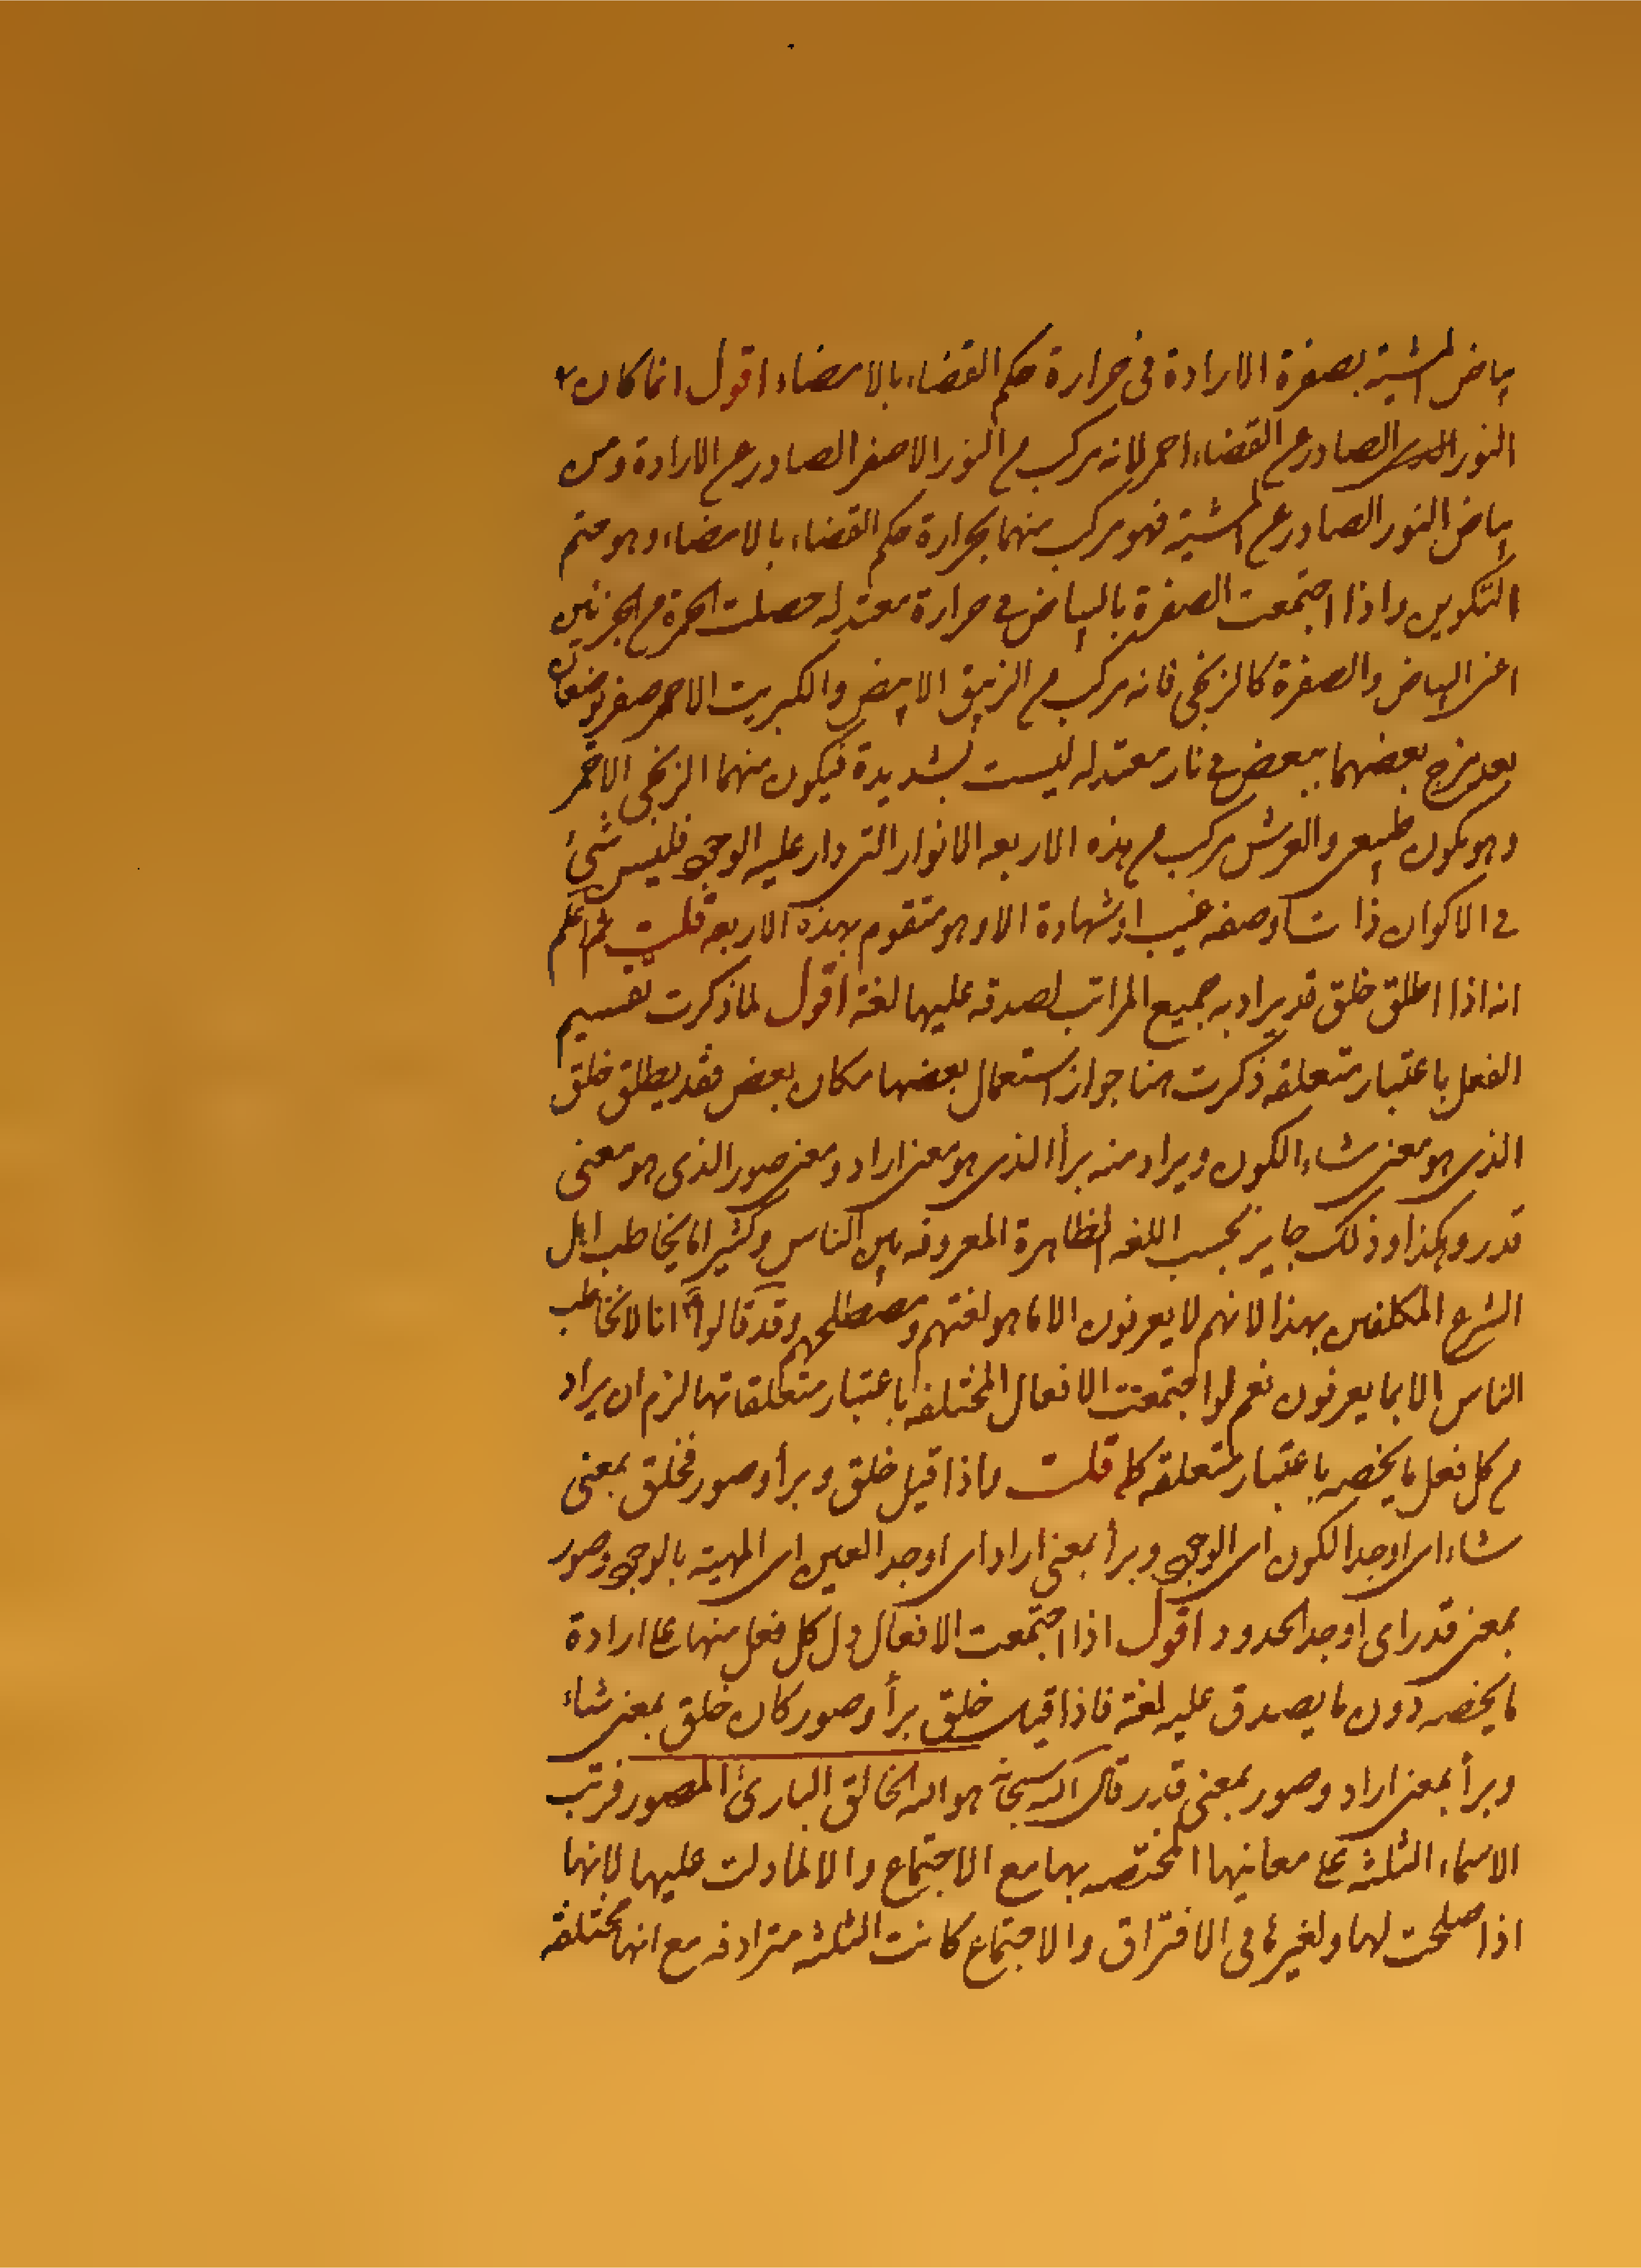 بياض المشية بصفرة الارادة فى حرارة حكم القضاء بالامضاء اقول انما كان
النور الصادر عن القضاء احمر لانه مركب من النور الاصفر الصادر عن الارادة ومن
بياض النور الصادر عن المشية فهو مركب منهما بحرارة حكم القضاء بالامضاء وهو متم
التكوين واذا اجتمعت الصفرة بالبياض في حرارة معتدله حصلت الحمرة من الجزئين
اعنى البياض والصفرة كالزنجفر فانه مركب من الزيبق الابيض والكبريت الاصفر يوضعان
بعد مزج بعضهما ببعض في نار معتدله ليست بشديدة فيكون منهما الزنجفر الاحمر
وهو يكون طبيعى والعرش مركب من هذه الاربعه الانوار التى دار عليه الوجود فليس شئ
في الاكوان ذات او صفه غيب او شهادة الا وهو متقوم بهذه الاربعه قلت ثم اعلم
انه اذا اطلق خلق قد يراد به جميع المراتب لصدقه عليها لغة اقول لما ذكرت تقسيم
الفعل باعتبار متعلقه ذكرت هنا جواز استعمال بعضها مكان بعض فقد يطلق خلق
الذى هو معنى شاء الكون ويراد منه برأ الذى هو معنى اراد ومعنى صور الذى هو معنى
قدر وهكذا وذلك جايز بحسب اللغه الظاهرة المعروفه بين الناس وكثيرا ما يخاطب اهل
الشرع المكلفين بهذا لانهم لا يعرفون الا ما هو لغتهم ومصطلحهم وقد قالوا ع انا لا نخاطب
الناس الا بما يعرفون نعم لو اجتمعت الافعال المختلفه باعتبار متعلقاتها لزم ان يراد
من كل فعل ما يخصه باعتبار متعلقه كما قلت واذا قيل خلق وبرأ وصور فخلق بمعنى
شاء اى اوجد الكون اى الوجود وبرأ بمعنى اراد اى اوجد العين اى المهية بالوجود وصور
بمعنى قدر اى اوجد الحدود اقول اذا اجتمعت الافعال دل كل فعل منها على ارادة
ما يخصه دون ما يصدق عليه لغة فاذا قيل خلق برأ وصور كان خلق بمعنى شاء
وبرأ بمعنى اراد وصور بمعنى قدر قال الله سبحانه هو الله الخالق البارئ المصور فرتب
الاسماء الثلثه على معانيها المختصه بها مع الاجتماع والا لما دلت عليها لانها
اذا صلحت لها ولغيرها فى الافتراق والاجتماع كانت الثلثه مترادفه مع انها مختلفه